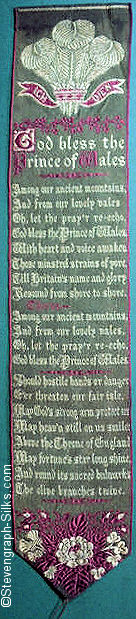 ICH DIEN
God bless the
Prince of Wales
Among our ancient mountains,
And from our lovely vales
Oh, let the pray'r re-echo,
God bless the Prince of Wales
With heart and voice awaken
Those minstrel strains of yore,
Till Britain's name and glory
Resound from shore to shore.
Among our ancient mountains,
And from our lovely vales,
Oh, let the pray'r re-echo
God bless the Prince of Wales
Should hostile bands or danger
E'er threaten our fair isle,
May God's strong arm protect us
May heav'n still on us smile
Above the Throne of England
May fortune's star long shine,
And round its sacred bulwarks
The olive branches twine.
©Stevengraph-Silks.com